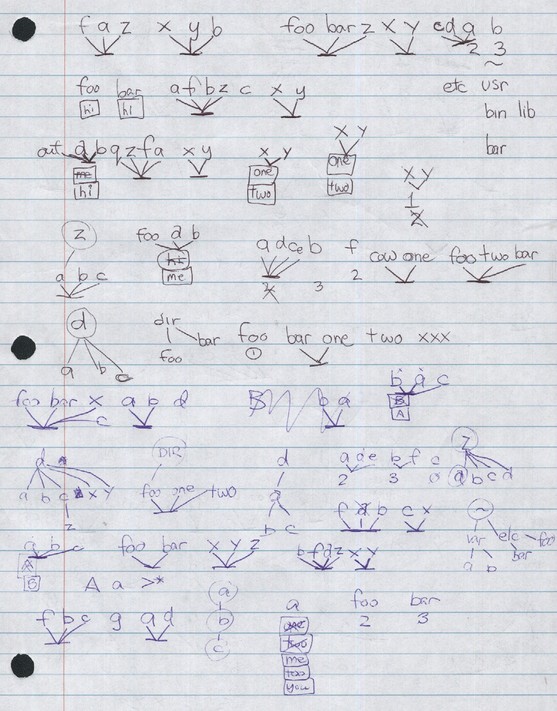 f a z x y b foo bar z x y c d a b
2 3
~
foo bar a f b z c x y etc usr
hi hi bin lib
bar
out a b q z f a x y x y x y
me one one
hi two two
x y
1
2
z foo a b a d c e b f cow one foo two bar
hi 2 3 2
me
a b c
d dir foo bar one two xxx
bar 1
foo
a b c
foo bar x a b d B b a b a c
c B
A
d DIR d a d e b f c z
2 3 0
a b c x y foo one two a a b c d
z b c
f a b c x ~
usr etc foo
bar
a b
a b c foo bar x y z b f d z x y
A
B
A a >*
a
b
c
f b c g a d a foo bar
one 2 3
two
me
too
you